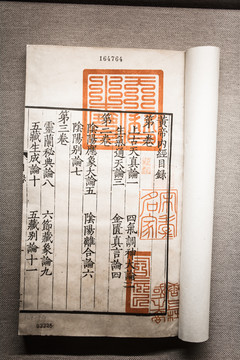 164764
黃帝內經目錄
第一卷
上古天真論一
四氣調神大論二
生氣通天論三
金匱真言論四
第二卷
陰陽應象大論五
陰陽離合論六
陰陽別論七
第三卷
靈蘭秘典論八
六節藏象論九
五藏生成論十
五藏別論十一